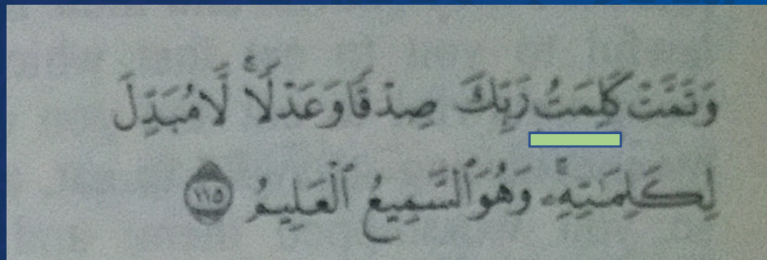 وَتَمَّتْ كَلِمَتُ رَبِّكَ صِدْقًا وَعَدْلًا ۚ لَّا مُبَدِّلَ
لِكَلِمَـٰتِهِۦ ۚ وَهُوَ ٱلسَّمِيعُ ٱلْعَلِيمُ ١١٥